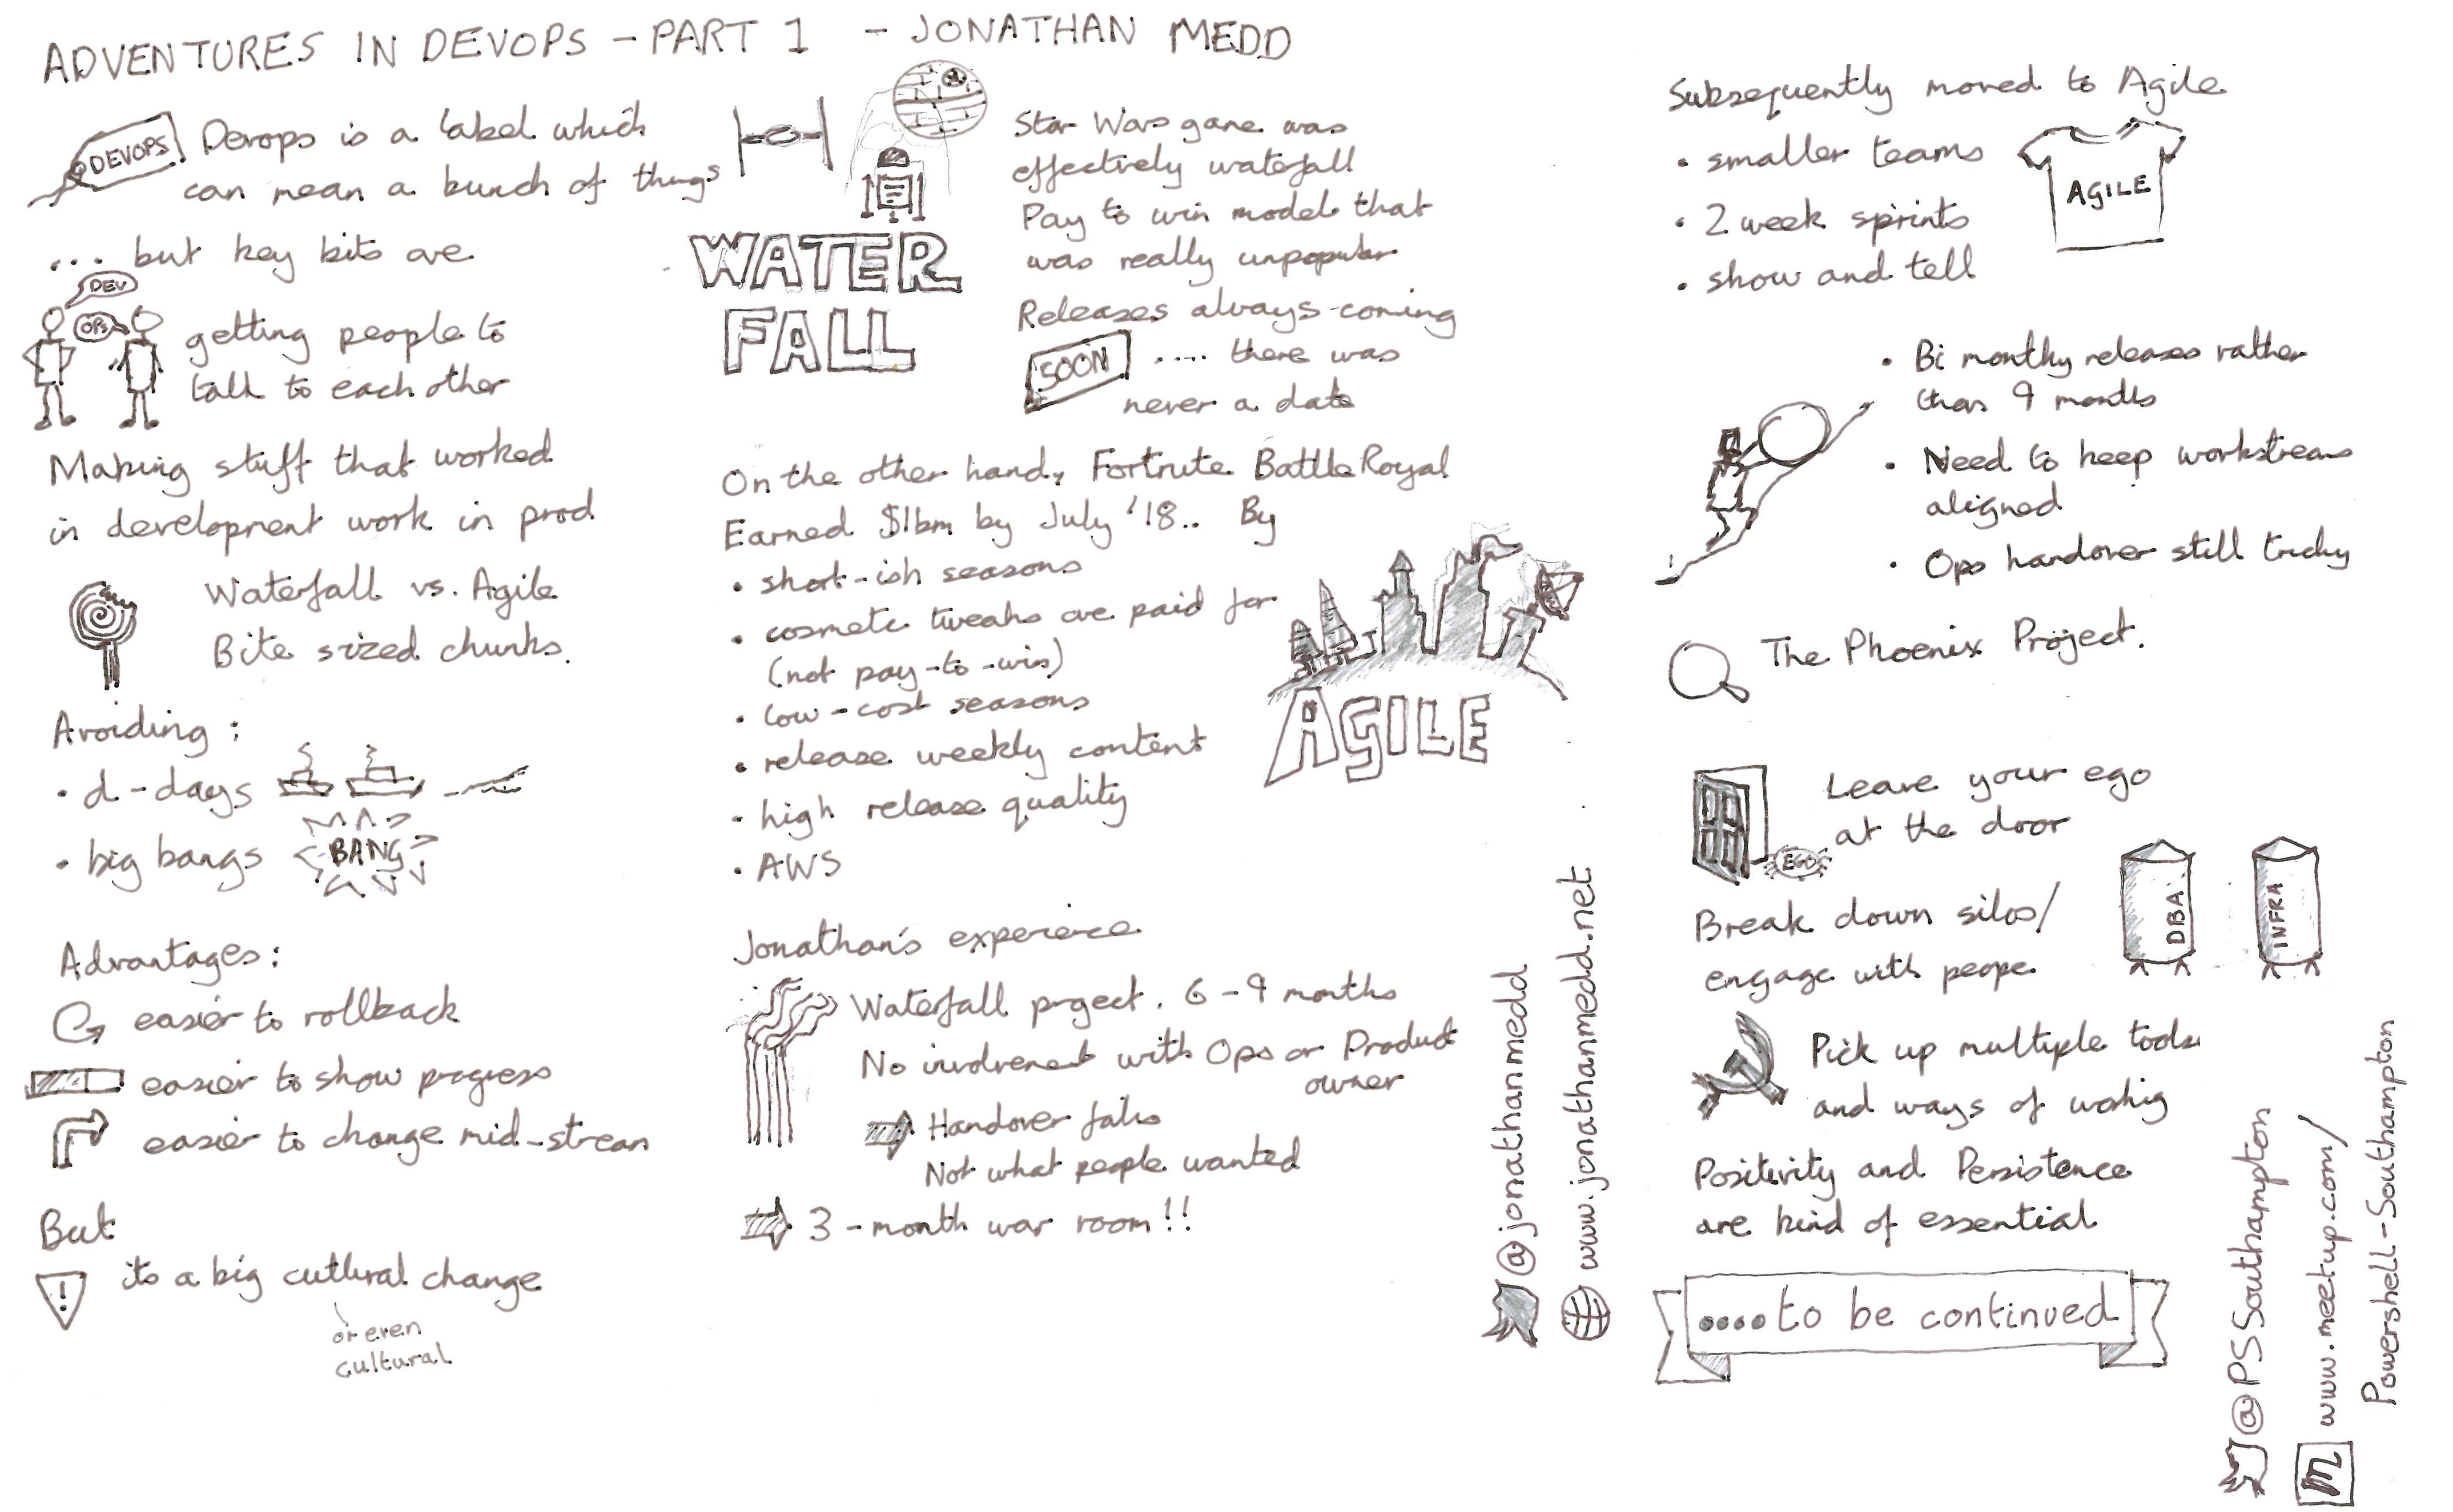 ADVENTURES IN DEVOPS - PART 1 - JONATHAN MEDD
DEVOPS
Devops is a label which
can mean a bunch of things
... but key bits are
DEV
OPS
getting people to
talk to each other
Making stuff that worked
in development work in prod
Waterfall vs. Agile
Bite sized chunks.
Avoiding:
• d-days
• big bangs
BANG
Advantages:
easier to rollback
easier to show progress
easier to change mid-stream
But
!
its a big cutlural change
or even
cultural
WATER
FALL
Star Wars game was
effectively waterfall
Pay to win model that
was really unpopular
Releases always coming
SOON .... there was
never a date
On the other hand, Fortnite Battle Royal
Earned $1bn by July '18.. By
• short-ish seasons
• cosmetic tweaks are paid for
(not pay-to-win)
• low-cost seasons
• release weekly content
• high release quality
• AWS
AGILE
Jonathan's experience
Waterfall project. 6-9 months
No involvement with Ops or Product
owner
Handover fails
Not what people wanted
3-month war room!!
@jonathanmedd
www.jonathanmedd.net
Subsequently moved to Agile
• smaller teams
• 2 week sprints
• show and tell
AGILE
• Bi monthly releases rather
than 9 months
• Need to keep workstreams
aligned
• Ops handover still tricky
The Phoenix Project.
Leave your ego
at the door
EGO
Break down silos/
engage with people
DBA
INFRA
Pick up multiple tools
and ways of working
Positivity and Persistence
are kind of essential
....to be continued
@PSSouthampton
m www.meetup.com/
Powershell-Southampton